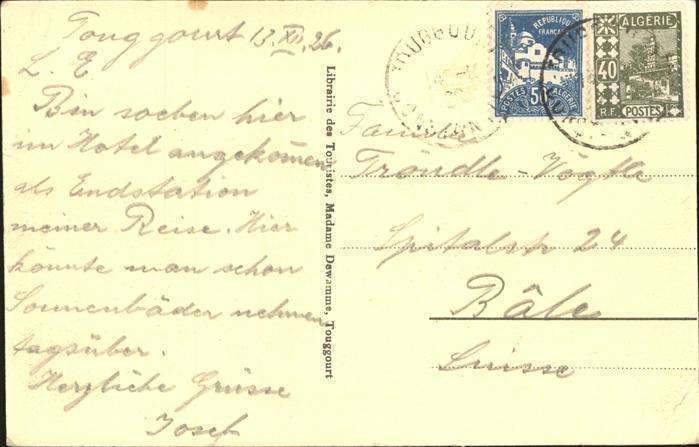 Touggourt 13.XII.26.
L. E.
Bin soeben hier
im Hotel angekommen
als Endstation
meiner Reise. Hier
könnte man schon
Sonnenbäder nehmen
tagsüber.
Herzliche Grüsse
Josef
Librairie des Touristes, Madame Dewamme, Touggourt
RÉPUBLIQUE
FRANÇAISE
POSTES ALGÉRIE
50
ALGÉRIE
40
R.F. POSTES
TOUGGOURT
Familie
Tröndle-Vögtle
Spitalstr 24
Bâle
Suisse